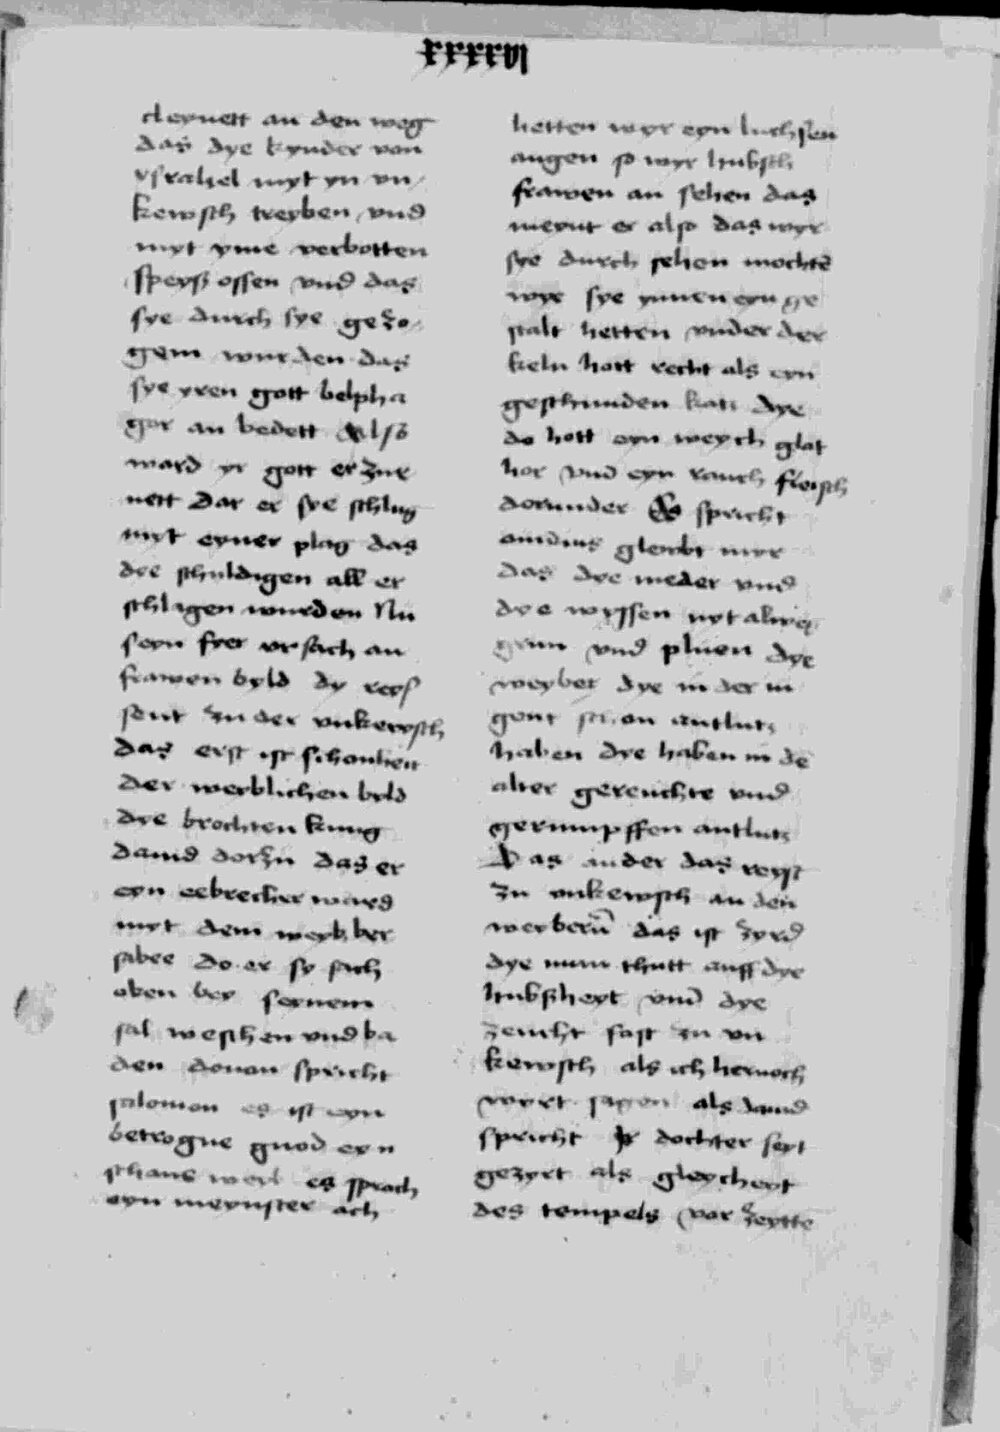 xxxxxvi
cleynett an den weg
das dye kynder von
ysrahel myt yn vn/
kewsch treyben vnd
myt yme verbotten
speyß ossen vnd das
sye durch sye gezo/
gem wurden das
sye yren gott belpha
gor an bedett Also
ward yr gott erzur
nett Dar er sye schlug
myt eyner plag das
dye schuldigen all er
schlagen wurden Nu
seyn fyer vrsach an
frawen byld dy reys
sent zu der vnkewsch
das erst ist schonheit
der weyblichen byld
dye brochten kunig
dauid dorzu das er
eyn eebrecher ward
myt dem weyb ber
sabee do er sy sach
oben bey seynem
sal weschen vnd ba
den douon spricht
salomon es ist eyn
betrogne gnod eyn
schons weyb es sprach
eyn meynster ach
hetten wyr eyn luchssen
augen so wyr hubsch
frawen an sehen das
meynt er also das wyr
sye durch sehen mochtē
wye sye ynnen eyn ge
stalt hetten vnder der
keln hatt recht als eyn
geschunden katz dye
do hott eyn weych glat
hor vnd eyn rauch fleisch
dorunder Es spricht
ouidius glewbt myr
das dye meder vnd
dye wyssen nyt alweg
grun vnd pluen dye
weyber dye in der iu
gent schon antlutz
haben dye haben in dē
alter gereuchte vnd
gerumpffen antlutz
Das ander das reyst
zu vnkewsch an den
weyberū das ist zyrd
dye man thutt auff dye
hubscheyt vnd dye
zeucht fast zu vn
kewsch als ich hernoch
wyrt sagen als dauid
spricht Ir dochter seyt
gezyrt als gleycheyt
des tempels vor zeyttē